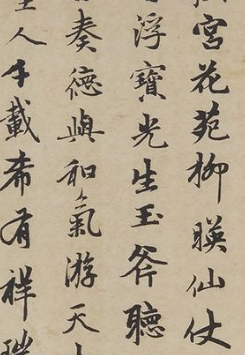 宮花苑柳暎仙仗
浮寶光生玉斧聽
奏德與和氣游天
人千載希有祥瑞